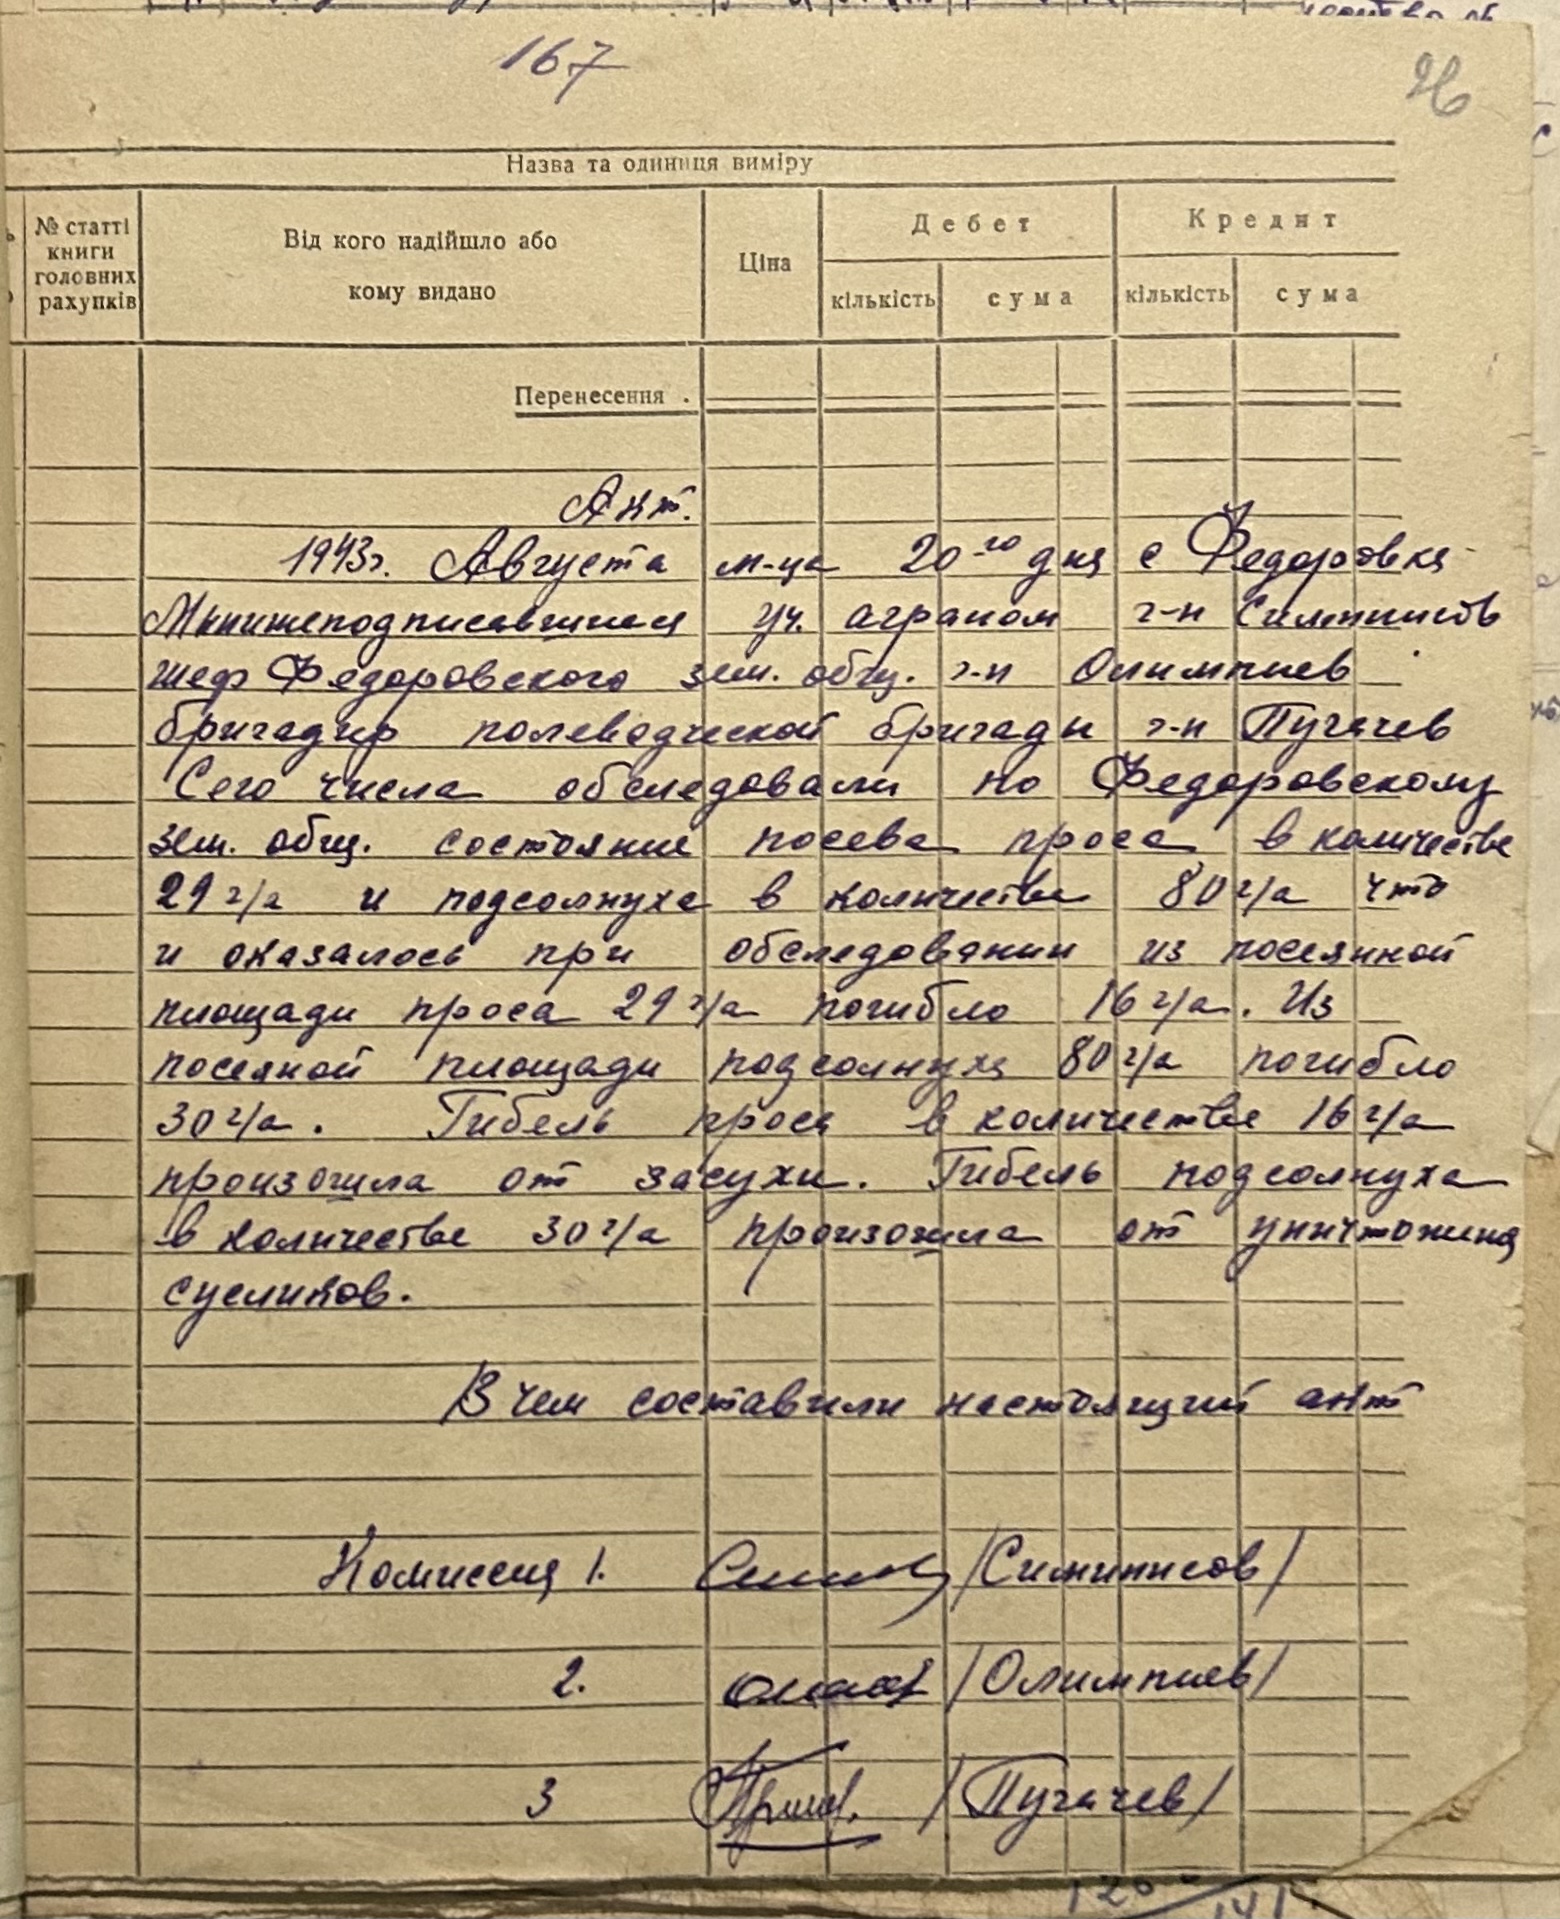 167
26
Назва та одиниця виміру
№ статті книги головних рахунків
Від кого надійшло або кому видано
Ціна
Дебет
Кредит
кількість
сума
кількість
сума
Перенесення .
Акт.
1943г. Августа м-ца 20-го дня с Федоровка
Мынижеподписавшиеся уч. аграном г-н
шеф Федоровского зем. общ. г-н Олимпиев
бригадир полеводческой бригады г-н Пугачев
Сего числа обследовали по Федоровскому
зем. общ. состояние посева проса в количестве
29 г/а и подсолнуха в количестве 80 г/а что
и оказалось при обследовании из посеянной
площади проса 29 г/а погибло 16 г/а. Из
посеяной площади подсолнуха 80 г/а погибло
30 г/а. Гибель проса в количестве 16 г/а
произошла от засухи. Гибель подсолнуха
в количестве 30 г/а произошла от уничтожения
сусликов.
В чем составили настоящий акт
Комиссия 1.
2. /Олимпиев/
3 /Пугачев/